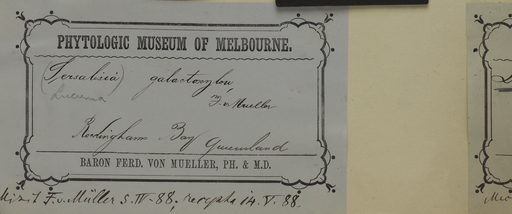 PHYTOLOGIC MUSEUM OF MELBOURNE.
(Sersalisia) galactoxylon,
Lucuma
F. v. Mueller
Rockingham Bay
Queensland
BARON FERD. VON MUELLER, PH. & M.D.
Misit F. v. Müller 5. IV-88; recepta 14. V. 88.